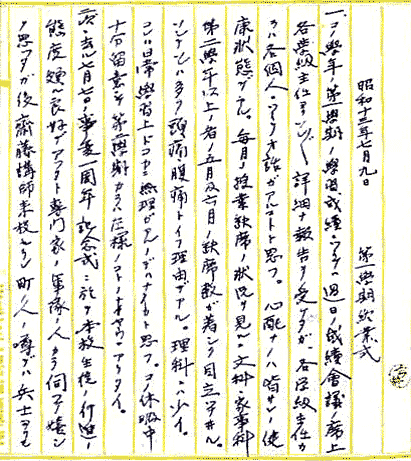 昭和十三年七月九日　第一學期終業式
一、今學年第一學期ノ學習成績ニツイテハ過日ノ成績會議席上
各學級主任ヨリ詳細ナ報告ヲ受ケタガ、各學級主任カ
ラハ各個人ニツイテオ話ガアルコトト思フ。心配ナノハ皆サンノ健
康状態デアル。毎月ノ授業缺席ノ状況ヲ見ルニ文科ト家事科
第二學年以上ノ者ノ五月及六月ノ缺席數ガ著シク目立ツテヰル。
ソシテソレハ多ク頭痛腹痛トイフ理由デアル。理科ニハ少イ。
コレハ日常ノ學習上ドコカニ無理ガアルノデハナイカト思フ。コノ休暇中
十分留意シテ第二學期カラハ左樣ノコトノナイヤウニアリタイ。
二、次ニ去ル七月七日ノ事変一周年記念式ニ於ケル本校生徒ノ行進ノ
態度頗ル良好デアツタト専門家ノ軍隊ノ人カラ伺ツテ嬉シ
ク思ツタガ後齋藤講師来校セラレ町ノ人ノ噂デハ兵士ヨリモ